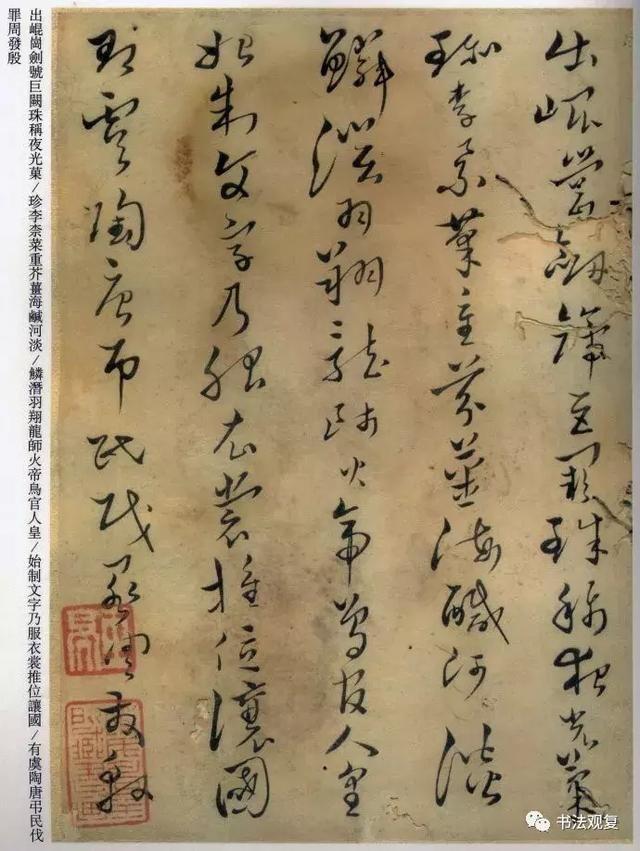 出崐崗劍號巨闕珠稱夜光菓
珍李柰菜重芥薑海鹹河淡
鱗潛羽翔龍師火帝鳥官人皇
始制文字乃服衣裳推位讓國
有虞陶唐弔民伐罪周發殷
出崐崗劍號巨闕珠稱夜光菓/珍李柰菜重芥薑海鹹河淡/鱗潛羽翔龍師火帝鳥官人皇/始制文字乃服衣裳推位讓國/有虞陶唐弔民伐
罪周發殷
书法观复